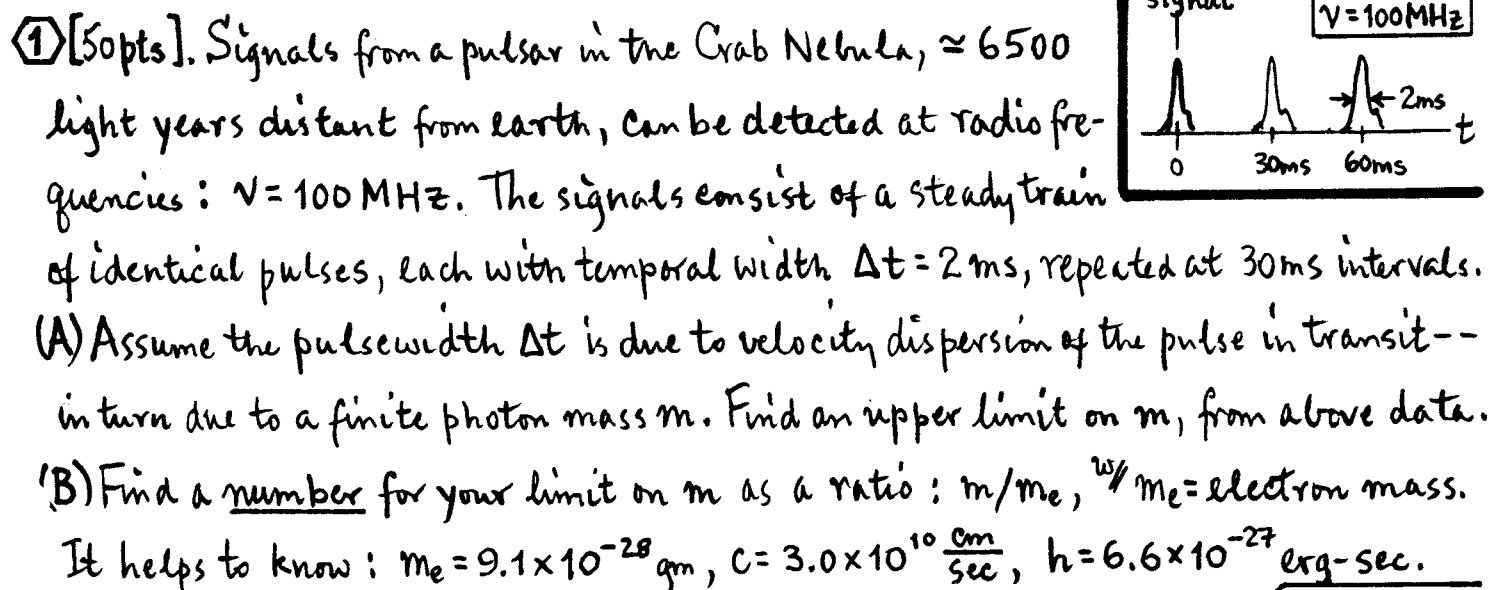 signal
ν=100MHz
2ms
t
0 30ms 60ms
① [50pts]. Signals from a pulsar in the Crab Nebula, ≃ 6500
light years distant from earth, can be detected at radio fre-
quencies: ν = 100 MHz. The signals consist of a steady train
of identical pulses, each with temporal width Δt = 2 ms, repeated at 30 ms intervals.
(A) Assume the pulsewidth Δt is due to velocity dispersion of the pulse in transit--
in turn due to a finite photon mass m. Find an upper limit on m, from above data.
(B) Find a number for your limit on m as a ratio: m/me, w// me = electron mass.
It helps to know: me = 9.1×10⁻²⁸ gm, c = 3.0×10¹⁰ cm/sec, h = 6.6×10⁻²⁷ erg-sec.